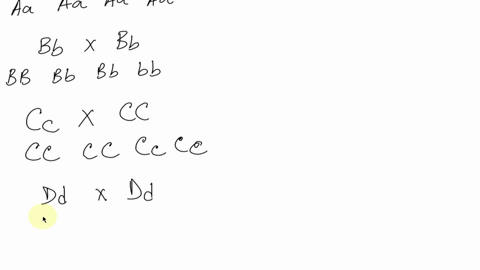 Aa Aa Aa Aa
Bb x Bb
BB Bb Bb bb
Cc x CC
CC CC Cc Cc
Dd x Dd